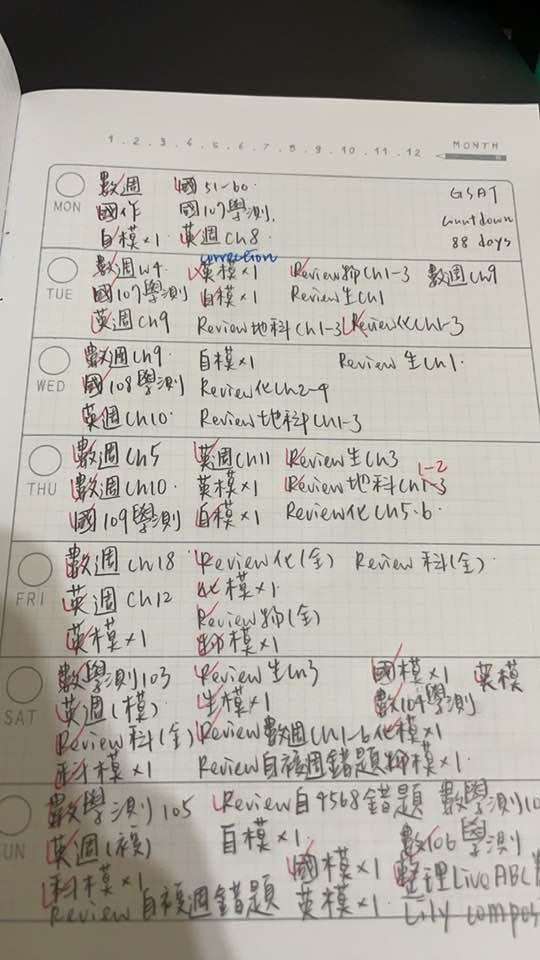 1 . 2 . 3 . 4 . 5 . 6 . 7 . 8 . 9 . 10 . 11 . 12 MONTH
MON
數週 國51-60.
國作 國107學測.
自模×1 英週Ch8
GSAT
countdown
88 days
TUE
correction
數週w4 英模×1 Review物Ch1-3 數週Ch9
國107學測 自模×1 Review生Ch1
英週Ch9 Review地科Ch1-3 Review化Ch1-3
WED
數週Ch9. 自模×1 Review 生Ch1.
國108學測 Review化Ch2-4
英週Ch10. Review地科Ch1-3
THU
數週Ch5 英週Ch11 Review生Ch3
1-2
數週Ch10. 英模×1 Review地科Ch1-3
國109學測 自模×1 Review化Ch5.6
FRI
數週Ch18 Review化(全) Review科(全).
英週Ch12 化模×1.
英模×1 Review物(全)
物模×1
SAT
數學測103 Review生Ch3 國模×1 英模
英週(模) 生模×1 數104學測
Review科(全) Review數週Ch1-6 化模×1
科模×1 Review自複週錯題 物模×1.
SUN
數學測105 Review自4568錯題 數學測10
英週(複) 自模×1. 數106學測
科模×1 國模×1 整理LiveABC
Review自複週錯題 英模×1. Lily compos